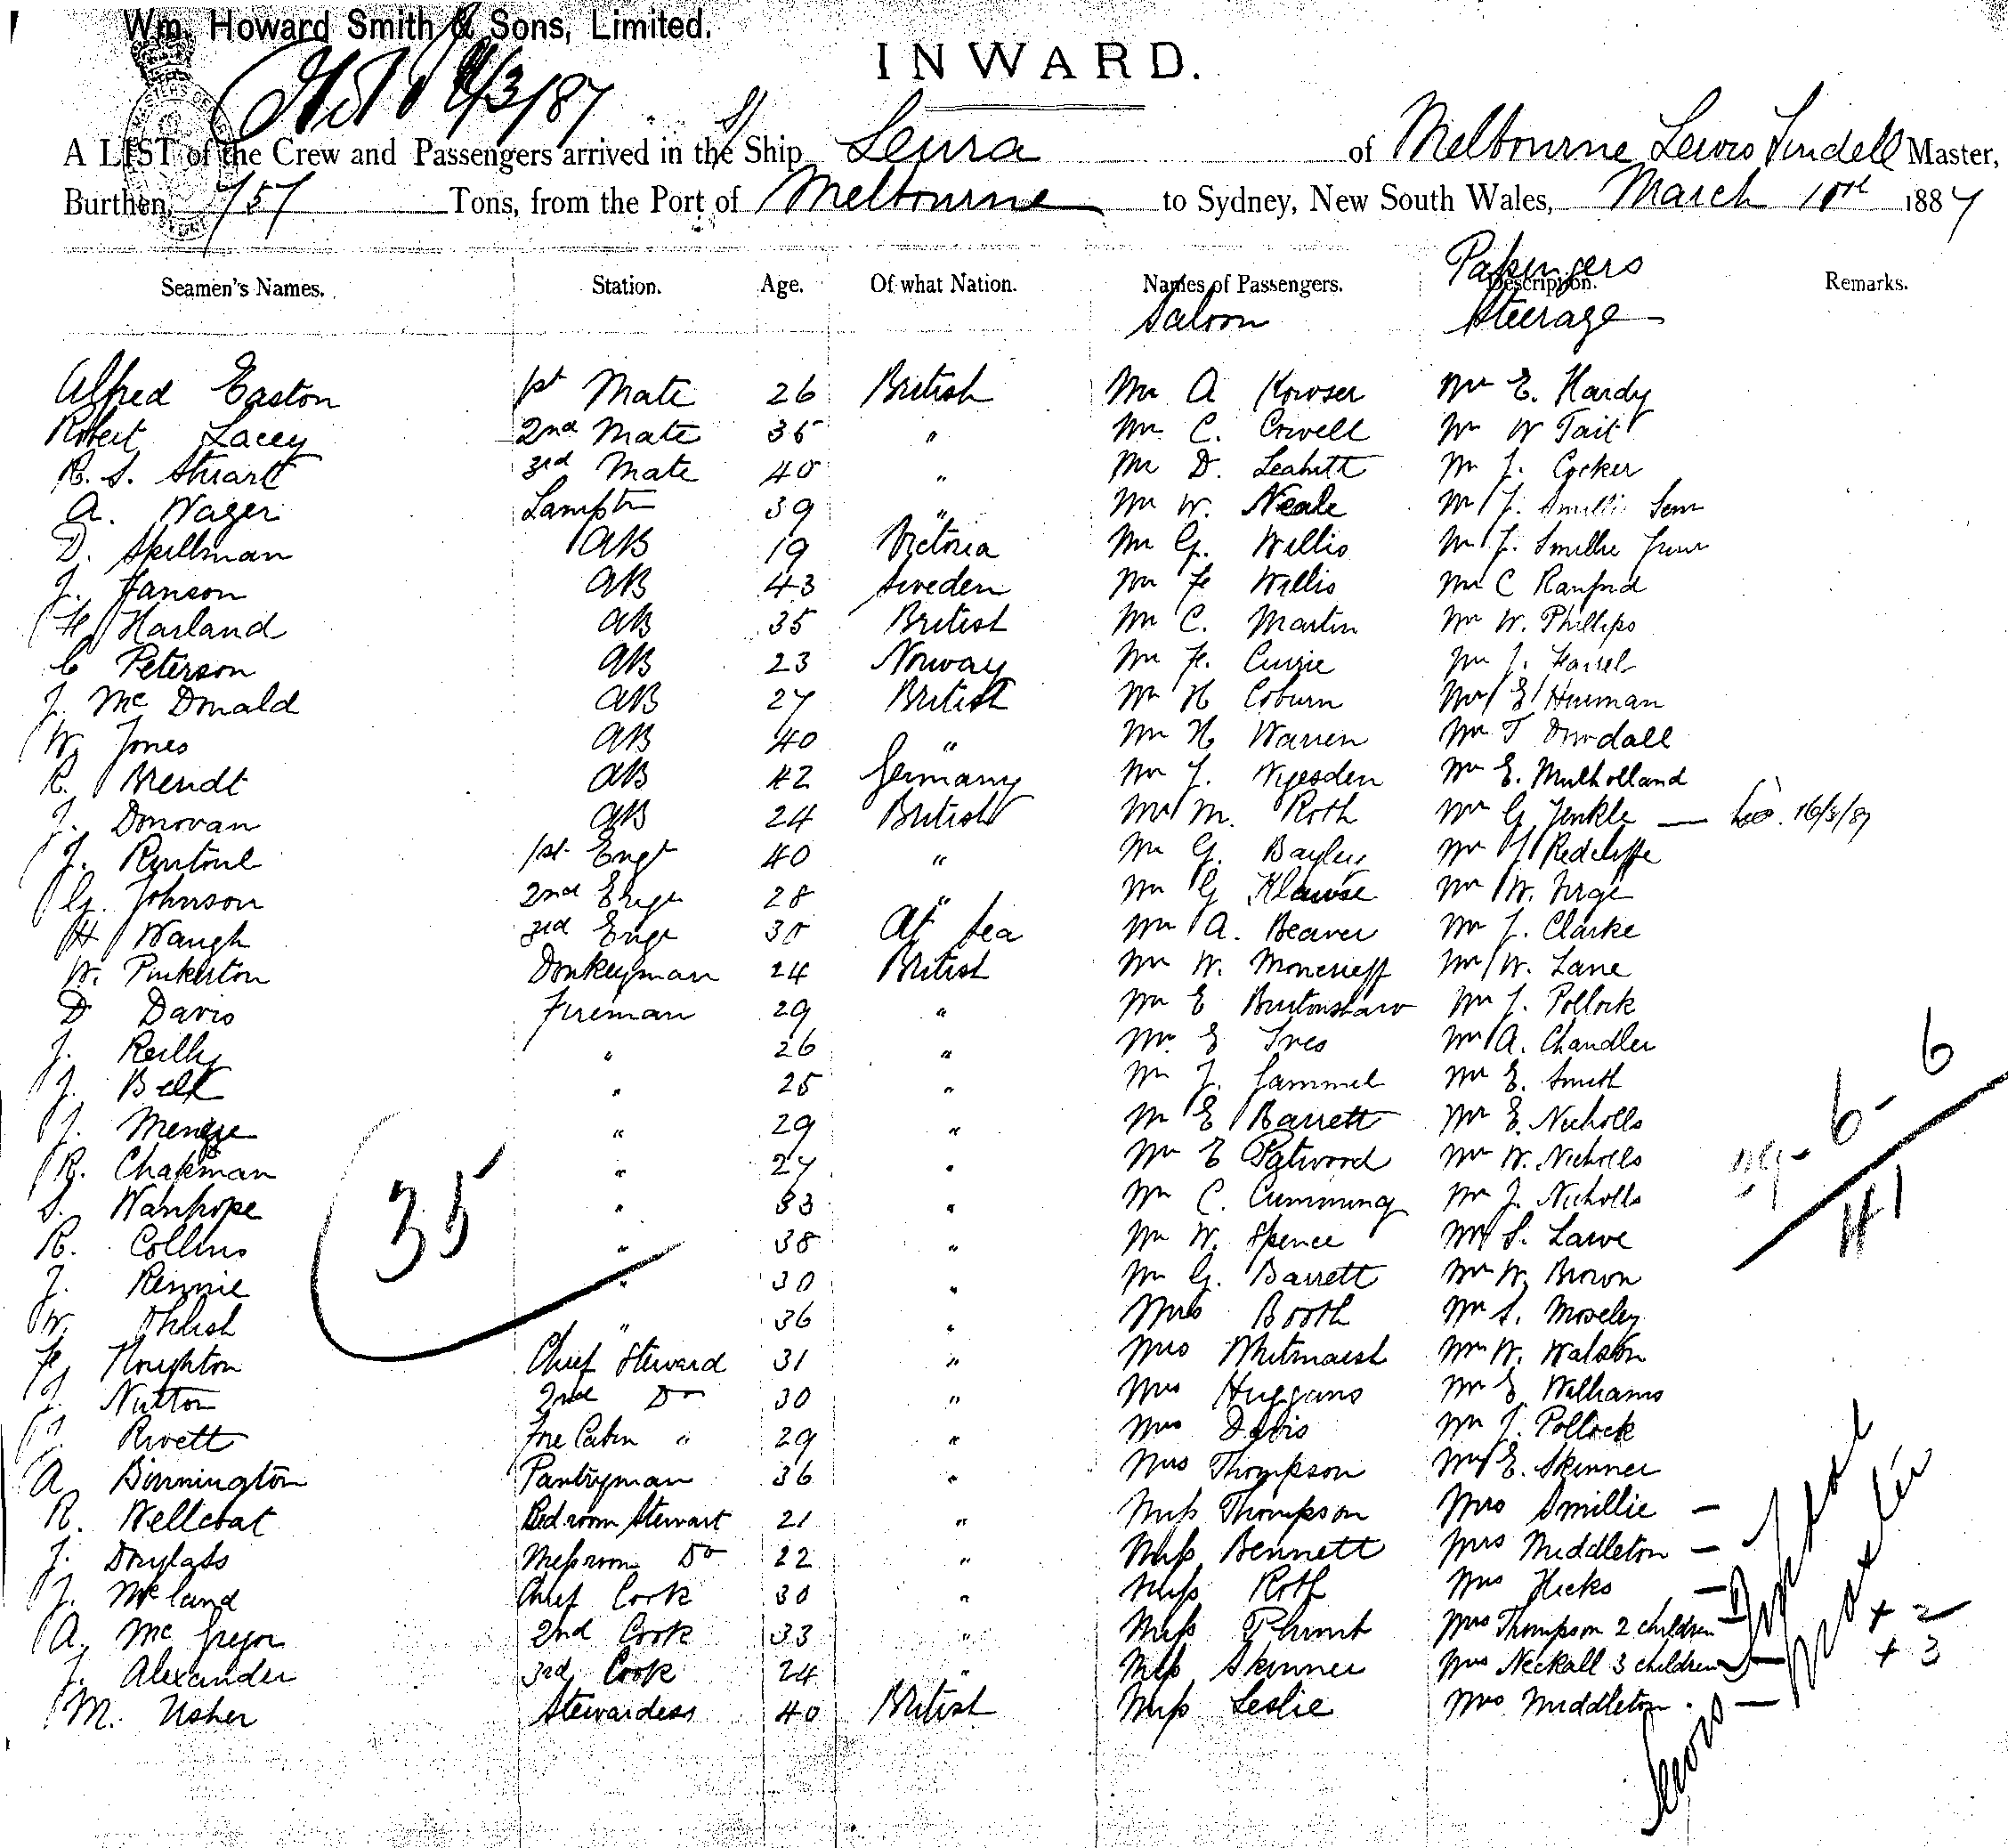 Wm. Howard Smith & Sons, Limited.
INWARD.
A LIST of the Crew and Passengers arrived in the Ship Leura of Melbourne Lewis Tindell Master,
Burthen, 757 Tons, from the Port of Melbourne to Sydney, New South Wales, March 10th 1887
Seamen's Names. Station. Age. Of what Nation. Names of Passengers. Description. Remarks.
Passengers
Saloon Steerage
Alfred Easton 1st Mate 26 British Mr A Kowser Mr E. Hardy
Robert Lacey 2nd Mate 35 " Mr C. Crwell Mr W Tait
R. S. Stuart 3rd Mate 40 " Mr D. Leahitt Mr J. Cocker
A. Wager Lamptr 39 " Mr W. Neale Mr J. Smillie Senr
D. Skillman AB 19 Victoria Mr G. Willis Mr J. Smillie Junr
J. Janson AB 43 Sweden Mr F. Willis Mr C Ranford
F. Harland AB 35 British Mr C. Martin Mr W. Phillips
C Peterson AB 23 Norway Mr F. Currie Mr J.
J. McDonald AB 27 British Mr H Coburn Mr E Hurman
W. Jones AB 40 " Mr H Warren Mr T
R. Brendt AB 42 Germany Mr J. Mr E. Mulholland
J. Donovan AB 24 British Mr M. Roth Mr G Jenkle — 16/3/87
J. Rintoul 1st Engr 40 " Mr G. Bayley Mr J Redcliffe
G. Johnson 2nd Engr 28 " Mr G Klawse Mr W.
H Waugh 3rd Engr 30 At Sea Mr A. Beaver Mr J. Clarke
W. Pinkerton Donkeyman 24 British Mr W. Moncrieff Mr W. Lane
D Davis Fireman 29 " Mr E Burtonshaw Mr J. Pollock
J. Reilly " 26 " Mr E Ives Mr A. Chandler
J. Bell " 25 " Mr J. Gammel Mr E. Smith
J. Menzie " 29 " Mr E Barrett Mr E. Nicholls
R. Chapman " 27 " Mr E Patwood Mr W. Nicholls
S. Wanhope " 33 " Mr C. Cumming Mr J. Nicholls
R. Collins " 38 " Mr W. Spence Mr S. Lawe
J. Rennie " 30 " Mr G. Barrett Mr W. Brown
W. Ohlish " 36 " Mrs Booth Mr S. Moseley
F. Houghton Chief Steward 31 " Mrs Whitmarsh Mr W. Walston
J. Nutton 2nd Do 30 " Mrs Huggans Mr E Williams
Rivett Fore Cabin " 29 " Mrs Davis Mr J. Pollock
A Binnington Pantryman 36 " Mrs Thompson Mr E. Skinner
R. Wellcoat Bedroom Stewart 21 " Miss Thompson Mrs Smillie —
J. Douglass Messroom Do 22 " Miss Bennett Mrs Middleton —
J. McLand Chief Cook 30 " Miss Roth Mrs Hicks —
A. McGregor 2nd Cook 33 " Miss Plumb Mrs Thompson 2 children + 2
J. Alexander 3rd Cook 24 " Miss Skinner Mrs Neckall 3 children + 3
M. Usher Stewardess 40 British Miss Leslie Mrs Middleton
35
6
6 -
41